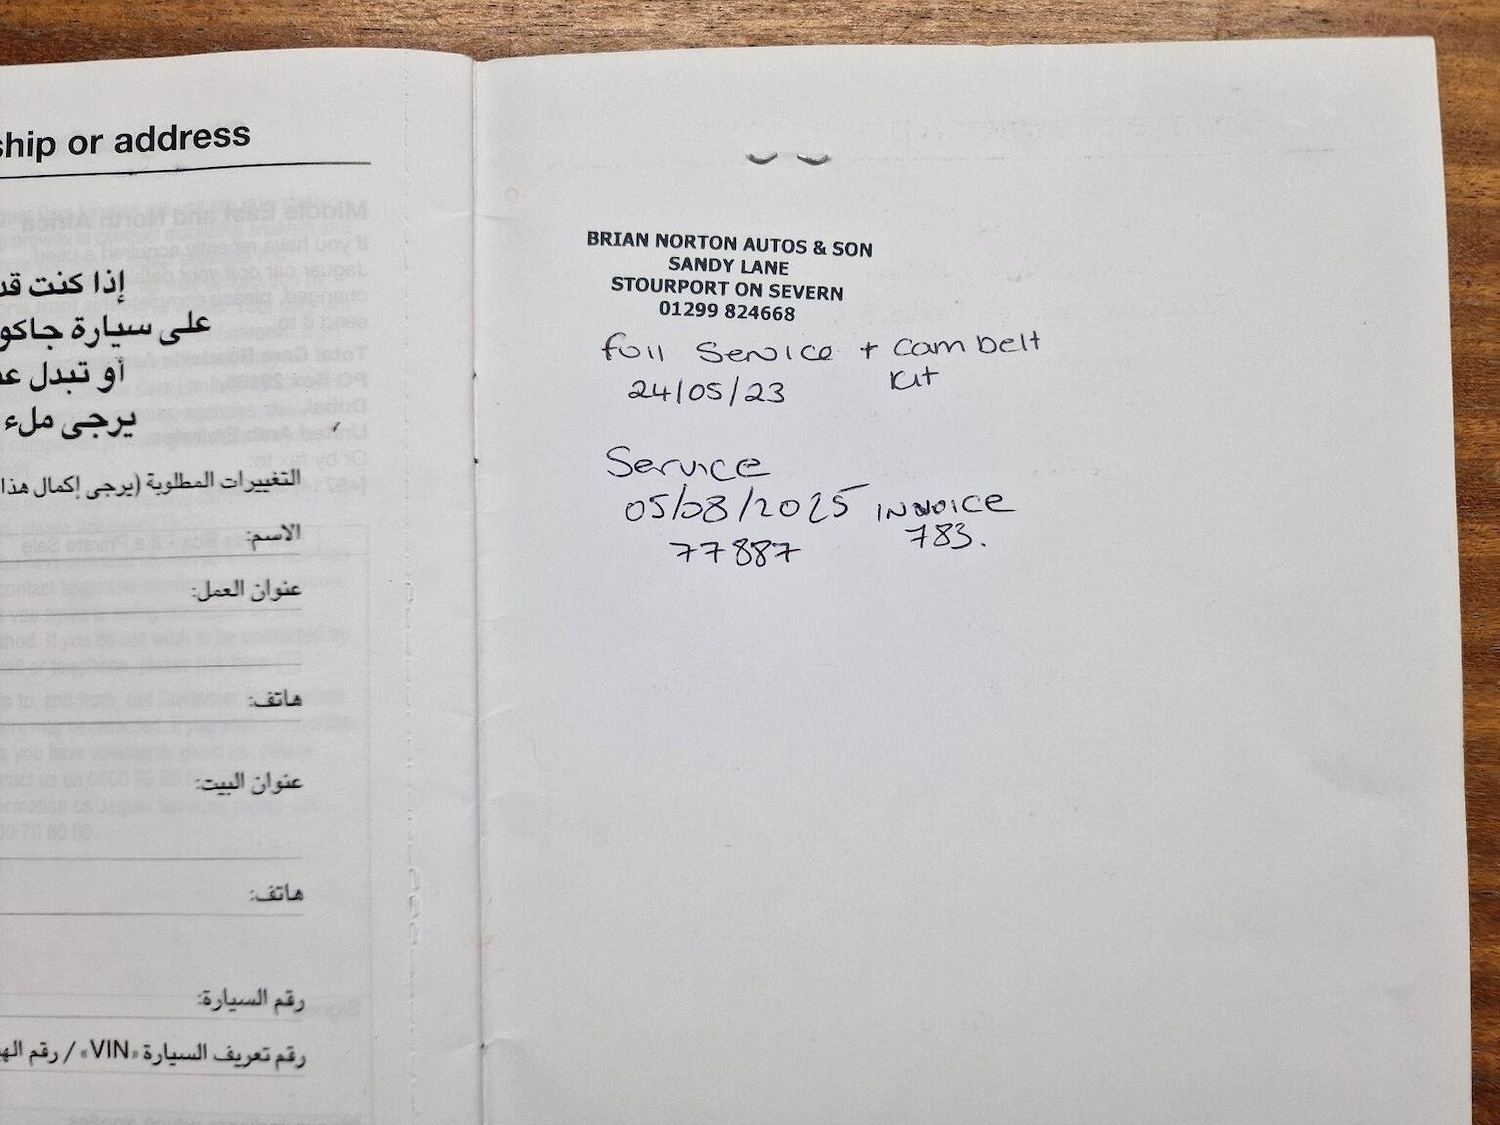 ship or address
إذا كنت قد
على سيارة جاكو
أو تبدل عـ
يرجى ملء
التغييرات المطلوبة (يرجى إكمال هذا
الاسم:
عنوان العمل:
هاتف:
عنوان البيت:
هاتف:
رقم السيارة:
رقم تعريف السيارة «VIN» / رقم الهـ
BRIAN NORTON AUTOS & SON
SANDY LANE
STOURPORT ON SEVERN
01299 824668
full Service + Cam belt
24/05/23 Kit
Service
05/08/2025 INVOICE
77887 783.